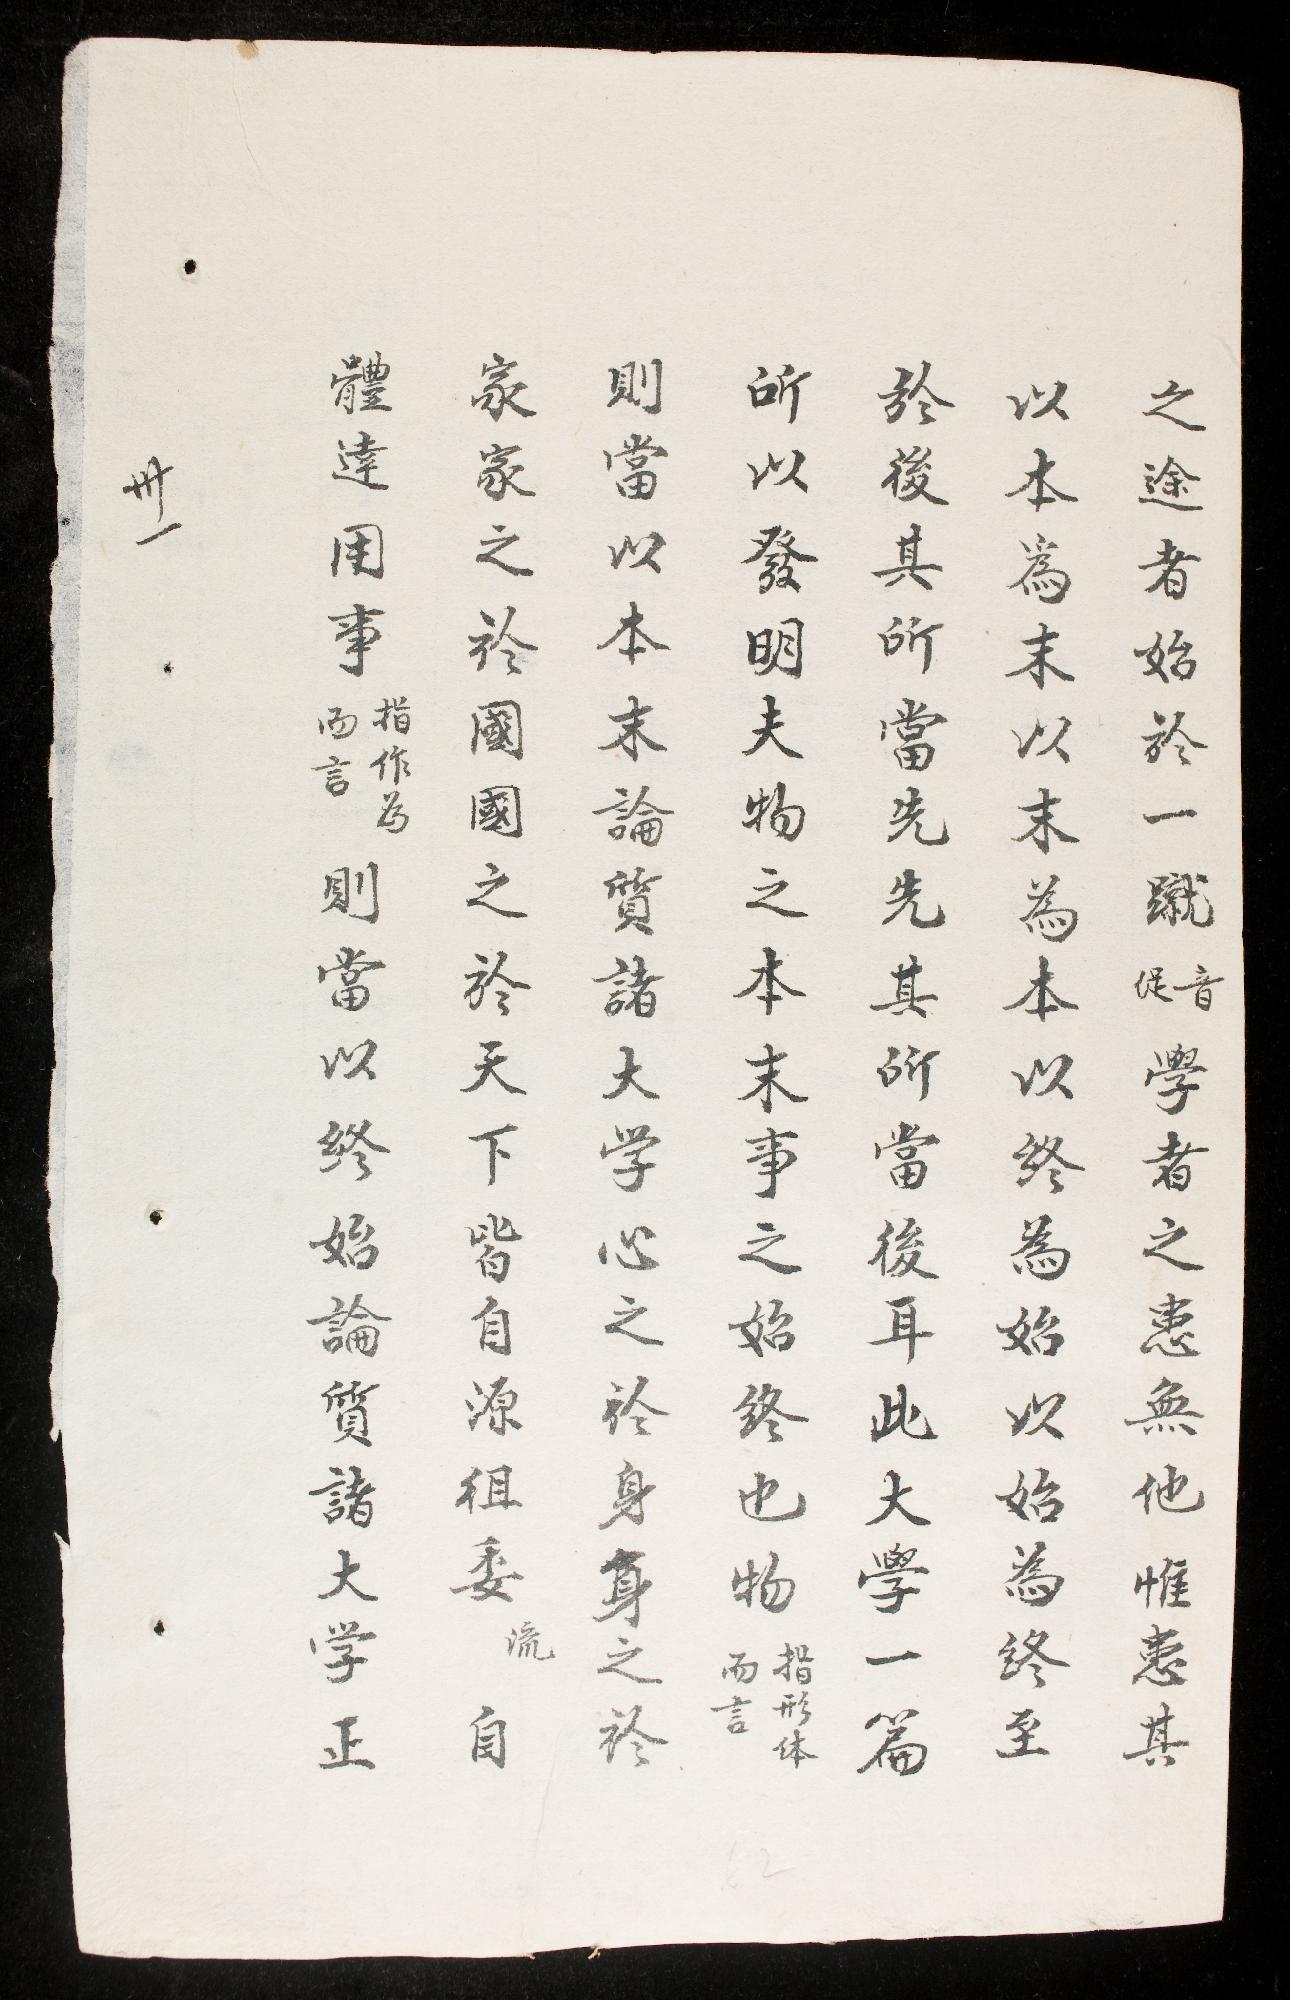 之途者始於一蹴音促學者之患無他惟患其
以本為末以末為本以終為始以始為終至
於後其所當先先其所當後耳此大學一篇
所以發明夫物之本末事之始終也物指形体而言
則當以本末論質諸大学心之於身身之於
家家之於國國之於天下皆自源徂委流自
體達用事指作為而言則當以終始論質諸大学正
卅一
62